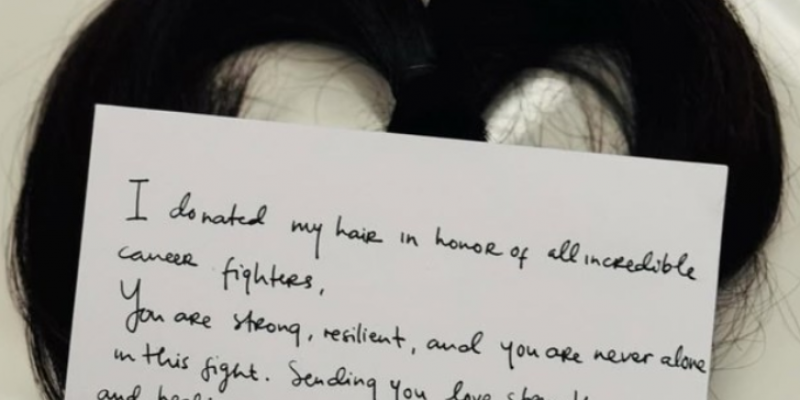 I donated my hair in honor of all incredible
cancer fighters,
You are strong, resilient, and you are never alone
in this fight. Sending you love
and